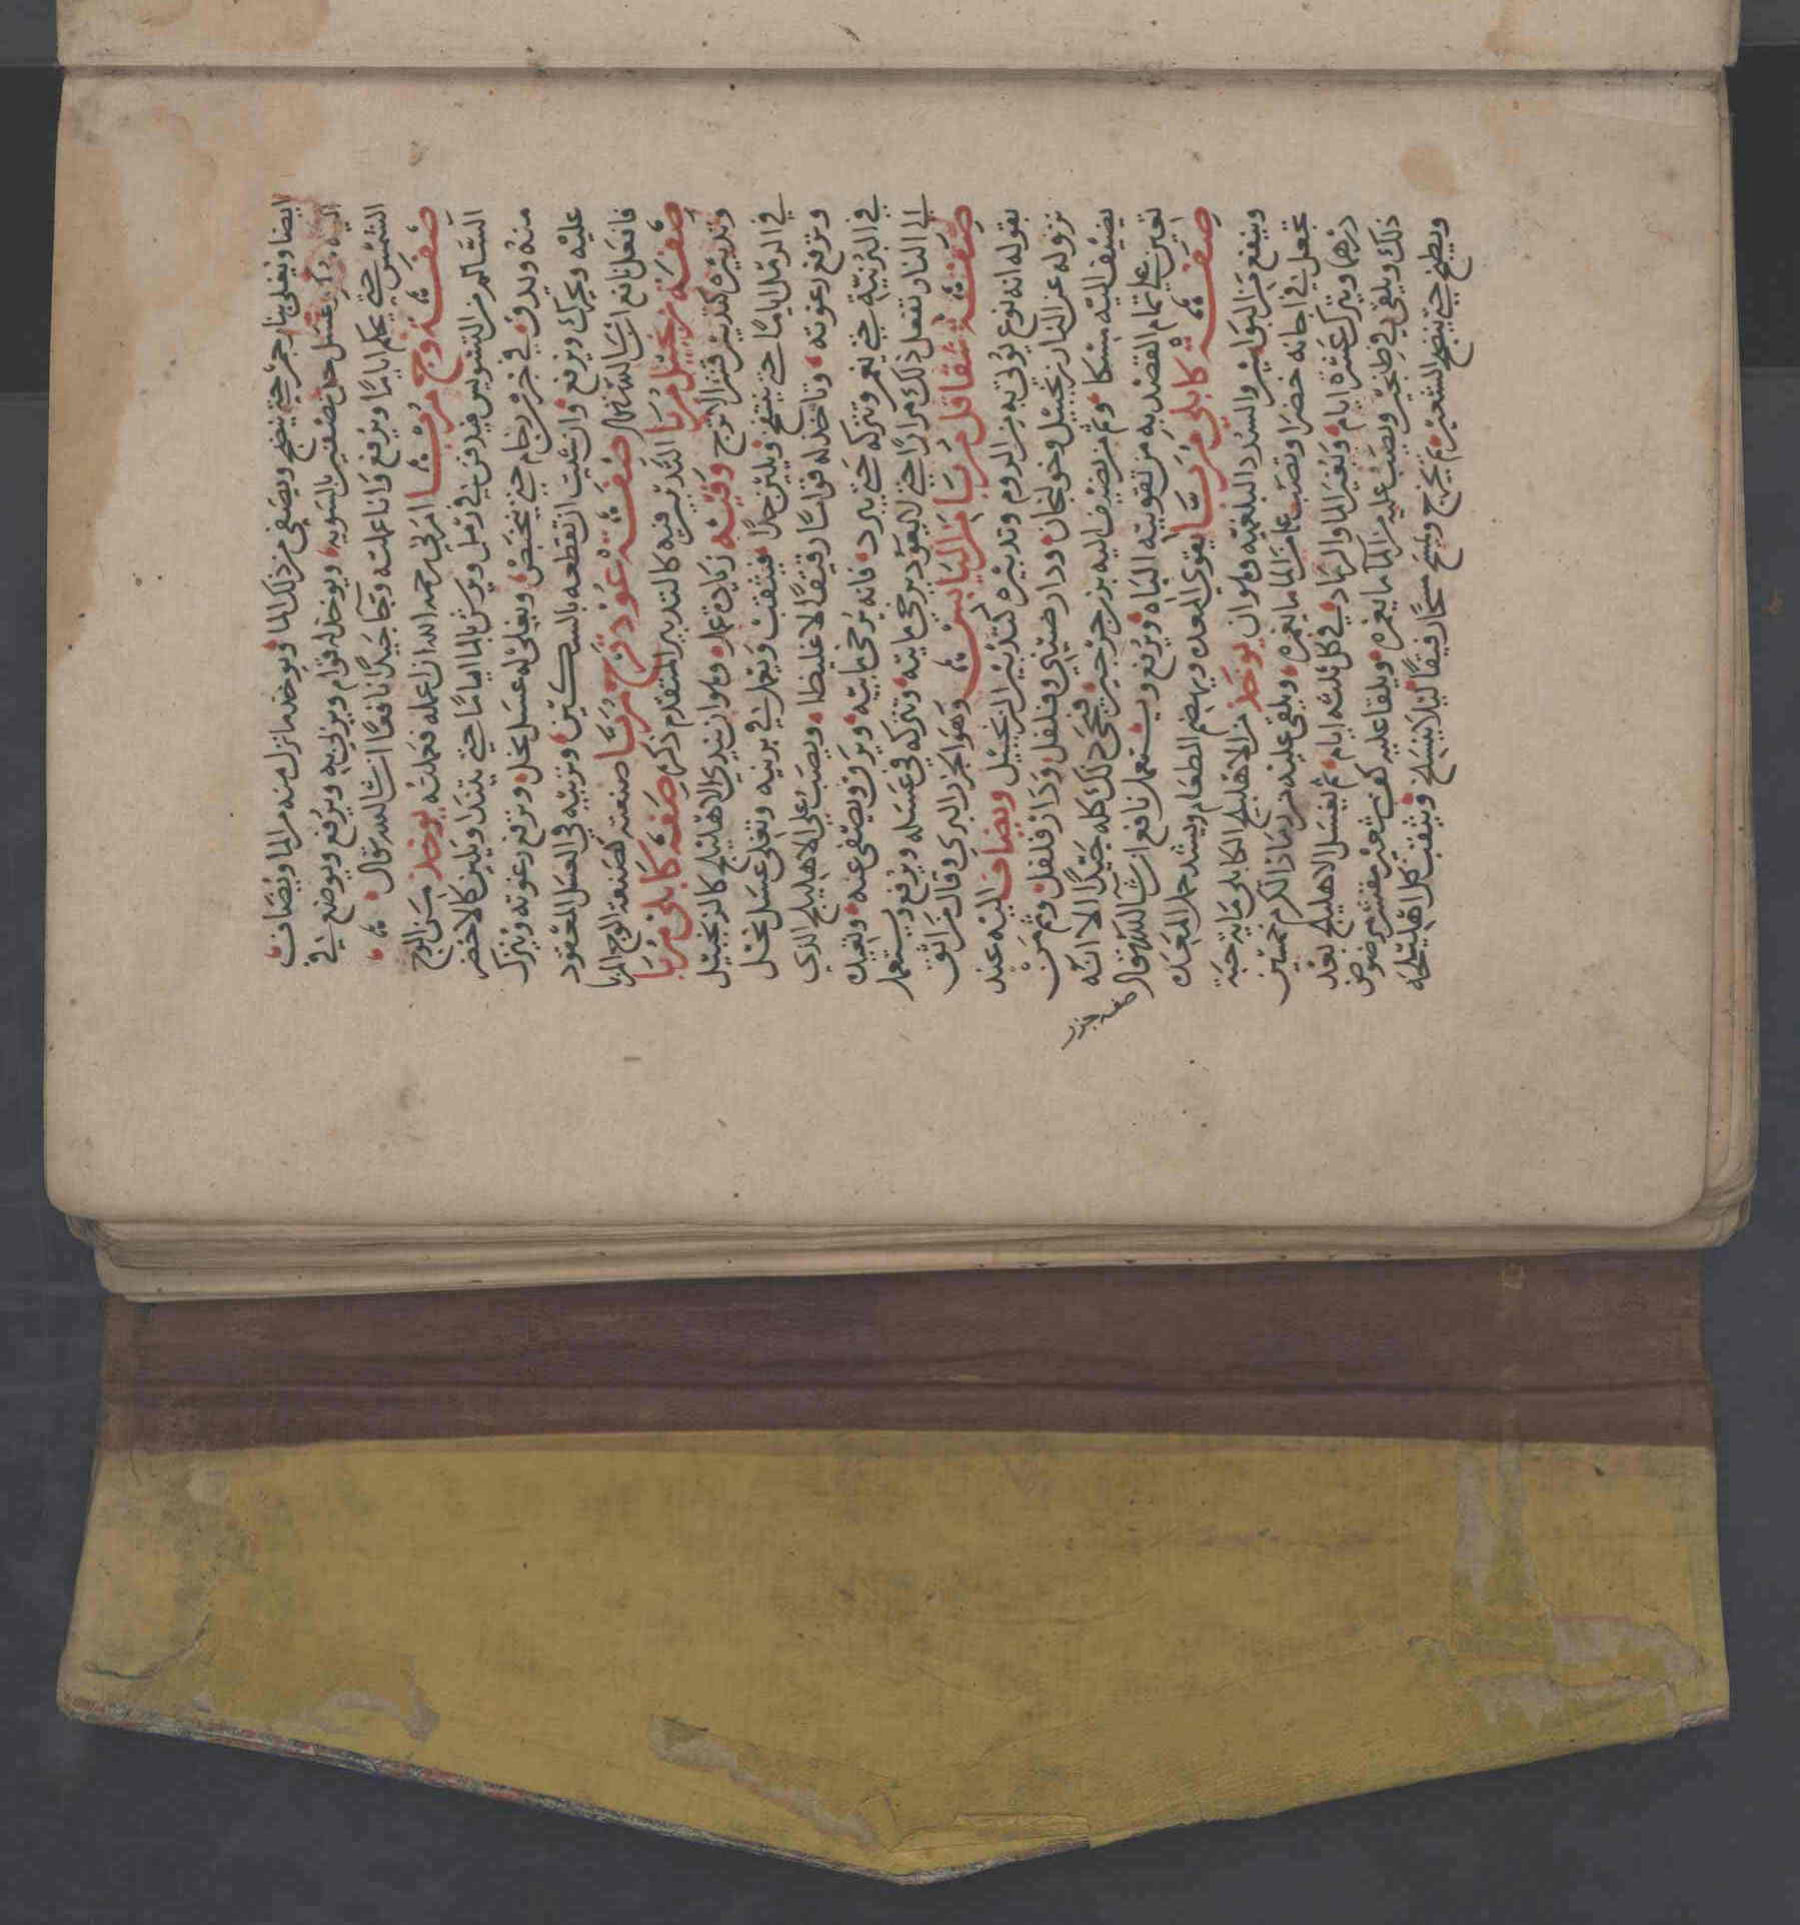 ايضا ويغلى بنار جمر حتى ينضج ويصفى من ذلك الماء ويوخذ ما نزل منه من الما ويضاف
اليه عسل حل نصفين بالسويه ويوخذ له قوام ويربى به ويرفع ويوضع في
الشمس حتى يحكم اياما ويرفع وانا عملته فجا جيدا نافعا ان شا الله تعالى
صفة وج مربا امرني رحمه الله ان اعمله فعملته يوخذ من الوج
السالم من التسويس فيدفن في رمل ويرش بالما اياما حتى يتندا ويلين كالاخضر
منه ويدق في جرن رخام حتى ويغلى له عسل نحل وتنزع رغوته ويترك
عليه ويحرك ويرفع وان شيت ان تقطعه بالسكين وتربيه في العسل المعقود
فافعل نافع ان شا الله تعالى صفة عود قرح مربا صنعته كصنعة الوج المربا
صفة زنجبيل مربا التدبير فيه كالتدبير المتقدم ذكره صفة كابلي مربا
وتدبيره كتدبير قشر الاترج وفيه زيادة عمله وهو ان يندي الاهليلج كالزنجبيل
في الرمل اياما حتى ينتفخ ويلين جدا فيثقب ويعمل في برنيه وتغلى عسل نحل
وتنزع رغوته وتاخذ له قواما رقيقا لا غليظا ويصب على الاهليلج الذي
في البرنية حتى يغمر وتتركه حتى يبرد فانه يرخى مايته ويرق ويصفى عنه وتعيده
الى النار تفعل ذلك مرارا حتى لا يعود يرخى مايته وتتركه في عسله ويرفع ويستعمل
صفة شقاقل مربا من اليابس وهو الجزر البري وقال من اثق
بقوله انه نوع يوتى به من الروم وتدبيره كتدبير الزنجبيل ويضاف اليه عند
نزوله عن النار زنجبيل وخولنجان ودار صيني وفلفل ودار فلفل وثم من
يضيف اليه مسكا وثم من يضيف اليه بزر جرجير فيجي ذلك كله جيدا الا انه
تعين على تمام القصد به من تقوية الباه ويرفع ويستعمل نافع ان شا الله تعالى
صفة كابلي مربا يقوي المعده ويهضم الطعام ويشد خمل المعده
وينفع من البواسير والسدد البلغميه وهو ان يوخذ من الاهليلج الكابلي ماية حبة
تجعل في اجانه خضرا وتصب عليه من الما ما يغمره ويلقى عليه من رماد الكرم خمسين
درهما ويترك عشرة ايام وتغير الما والرماد في كل ثلثه ايام ثم يغسل الاهليلج بعد
ذلك ويلقى في طنجير ويصب عليه من الما ما يغمره ويلقا عليه كف شعير مقشر مرضوض
ويطبخ حتى ينضج الشعير ثم يخرج ويمسح مسحا رفيقا ليلا ينسلخ ويثقب كل اهليلجه